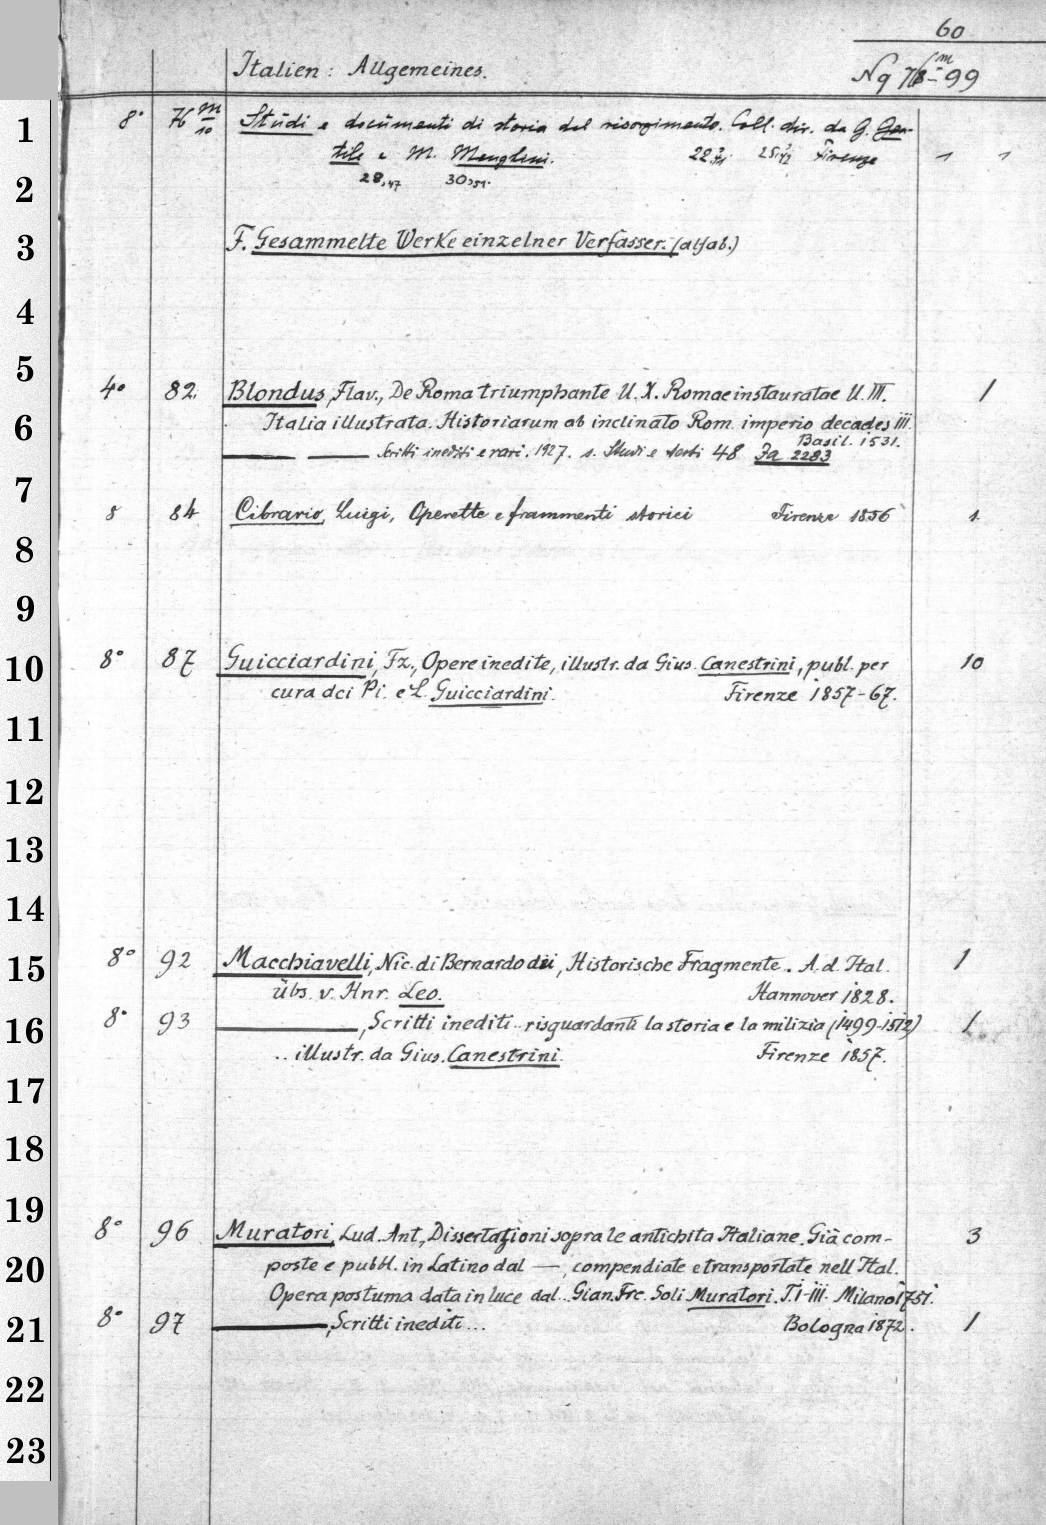 60
Italien: Allgemeines. Nq 76 m - 99
1 8° 76 m/10 Studi e documenti di storia del risorgimento. Coll. dir. da G. Gen-
tile e M. Menghini. Firenze
2 28,47 30,51.
3 F. Gesammelte Werke einzelner Verfasser. (alfab.)
4
5
4° 82. Blondus, Flav., De Roma triumphante U. X. Romae instauratae U. III. 1
6 Italia illustrata. Historiarum ab inclinato Rom. imperio decades III.
Basil. 1531.
Scritti inediti e rari. 1927. s. Studi e testi 48 Fa 2283
7
8 84 Cibrario, Luigi, Operette e frammenti storici Firenze 1856 1.
8
9
10 8° 87 Guicciardini, Fz., Opere inedite, illustr. da Gius. Canestrini, publ. per 10
cura dei Pi. e L. Guicciardini. Firenze 1857-67.
11
12
13
14
15 8° 92 Macchiavelli, Nic. di Bernardo dei, Historische Fragmente. A. d. Ital. 1
übs. v. Hnr. Leo. Hannover 1828.
16 8° 93 —, Scritti inediti .. risguardanti la storia e la milizia (1499-1512) 1
.. illustr. da Gius. Canestrini. Firenze 1857.
17
18
19
8° 96 Muratori, Lud. Ant., Dissertazioni sopra le antichita Italiane. Già com- 3
20 poste e pubbl. in Latino dal —, compendiate e transportate nell Ital.
Opera postuma data in luce dal.. Gian. Frc. Soli Muratori. T. I-III. Milano 1751.
21 8° 97 —, Scritti inediti ... Bologna 1872. 1
22
23